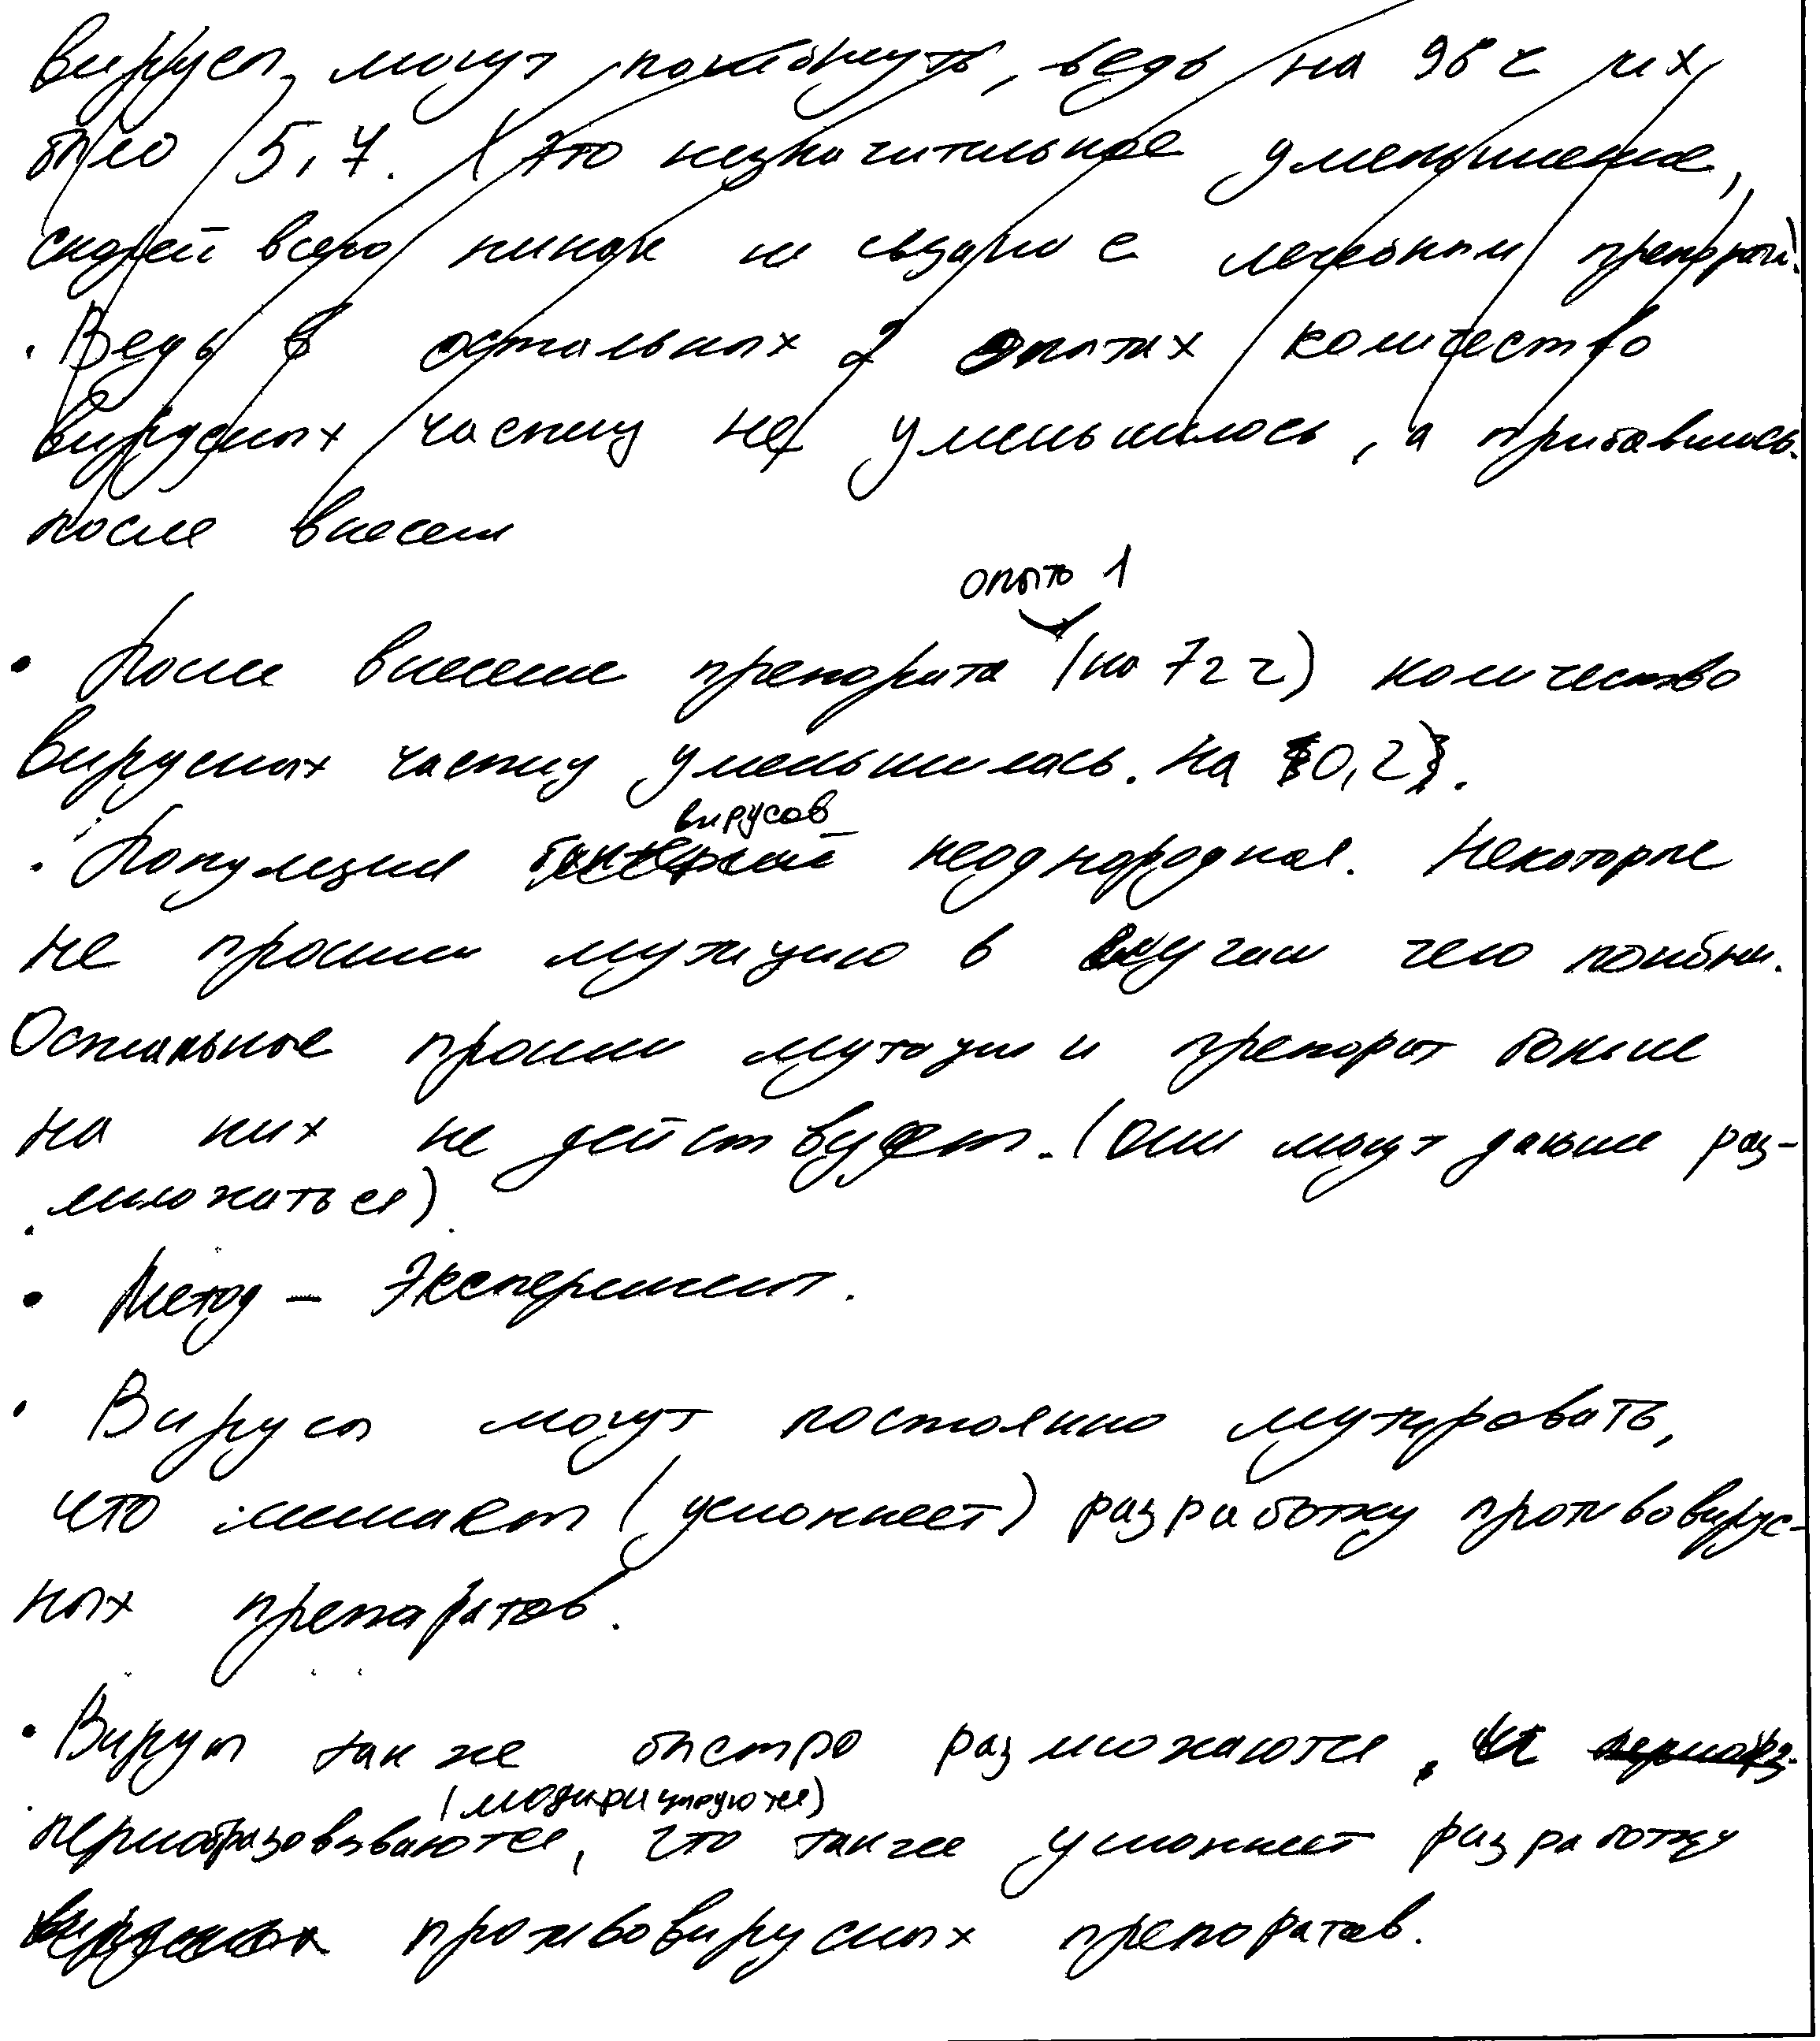 Вирусы могут погибнуть, ведь на 96 ч их
было 5,7. (Это незначительное уменьшение,
скорей всего никак не связано с лечебным препаратом)
. Ведь в остальных 2 опытах количество
вирусных частиц не уменьшилось, а прибавилось
после внесени
опыт 1
• После внесение препората (на 72 ч) количество
вирусных частиц уменьшилась. на 0,2.
вирусов
. Популяция бактерий неоднородная. Некоторые
не прошли мутацию в случаи чего погибли.
Остальные прошли мутации и препорат больше
на них не действует. (Они могут дальше раз-
множаться)
• Метод – Эксперимент.
• Вирусы могут постоянно мутировать,
что мешает (усложняет) разработку противовирус-
ных препаратов.
• Вирусы так же быстро размножаются, и
(модифицируются)
переобразовываются, что также усложняет разработку
противовирусных препоратав.